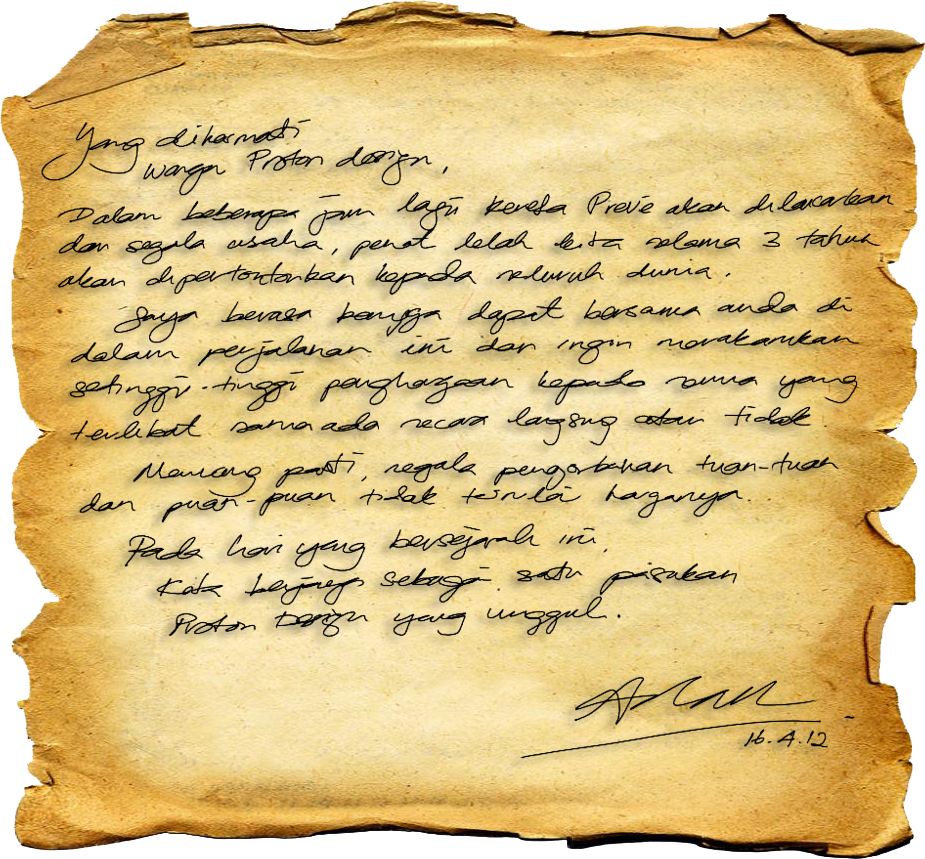 Yang dihormati
warga Proton design,
Dalam beberapa jam lagi kereta Preve akan dilancarkan
dan segala usaha, penat lelah kita selama 3 tahun
akan dipertontonkan kepada seluruh dunia.
Saya berasa bangga dapat bersama anda di
dalam perjalanan ini dan ingin merakamkan
setinggi-tinggi penghargaan kepada semua yang
terlibat samaada secara langsung atau tidak.
Memang pasti, segala pengorbanan tuan-tuan
dan puan-puan tidak ternilai harganya.
Pada hari yang bersejarah ini,
Kita sebagai satu pasukan
Proton Design yang unggul.
16.4.12